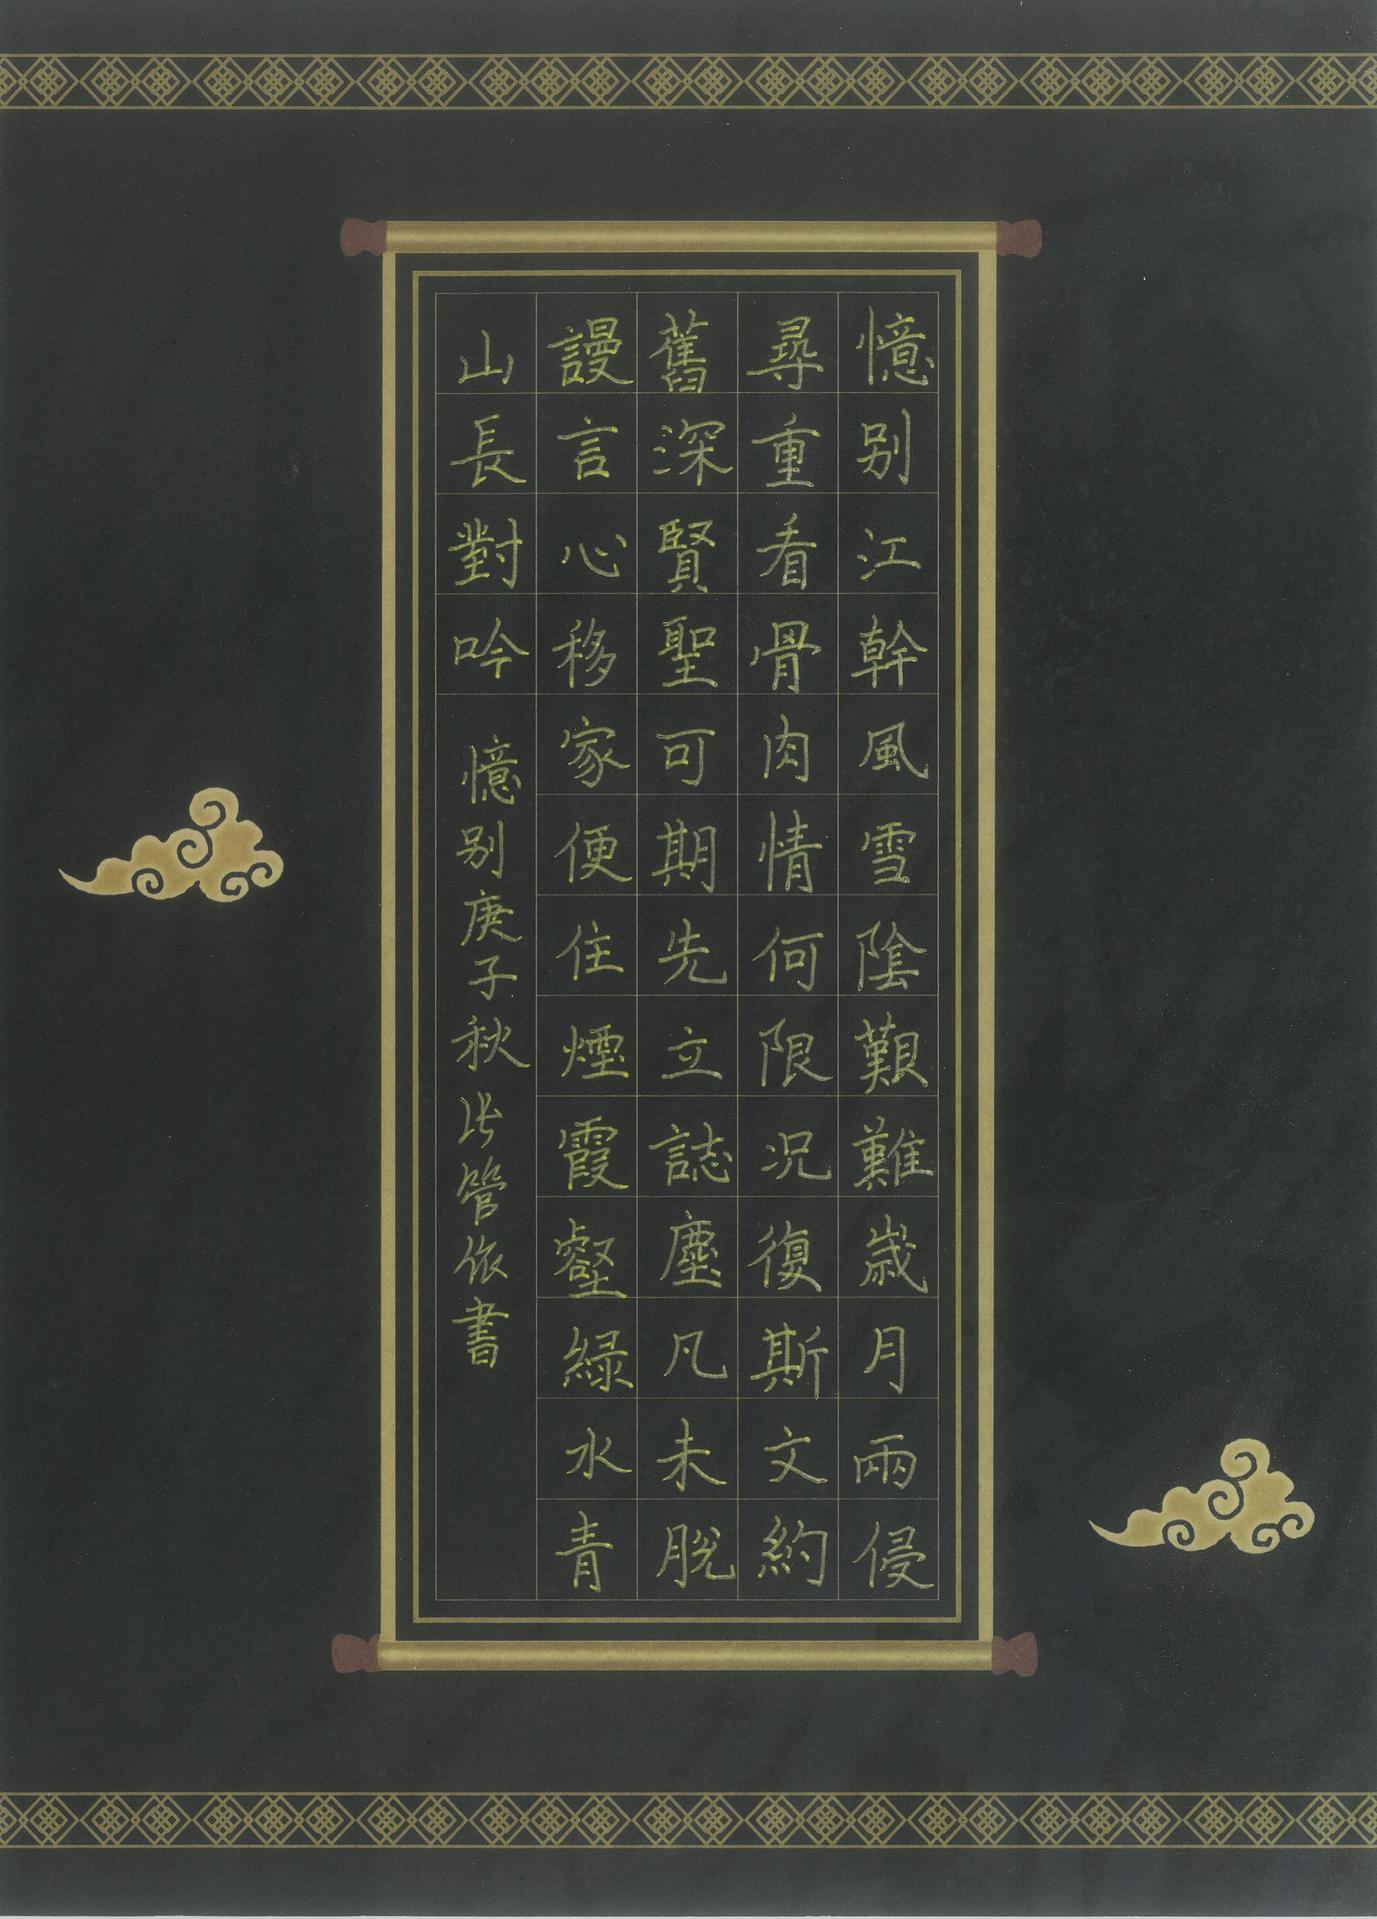 憶别江幹風雪陰艱難歲月兩侵
尋重看骨肉情何限况復斯文約
舊深賢聖可期先立誌塵凡未脫
謾言心移家便住煙霞壑綠水青
山長對吟
憶别庚子秋 管依書